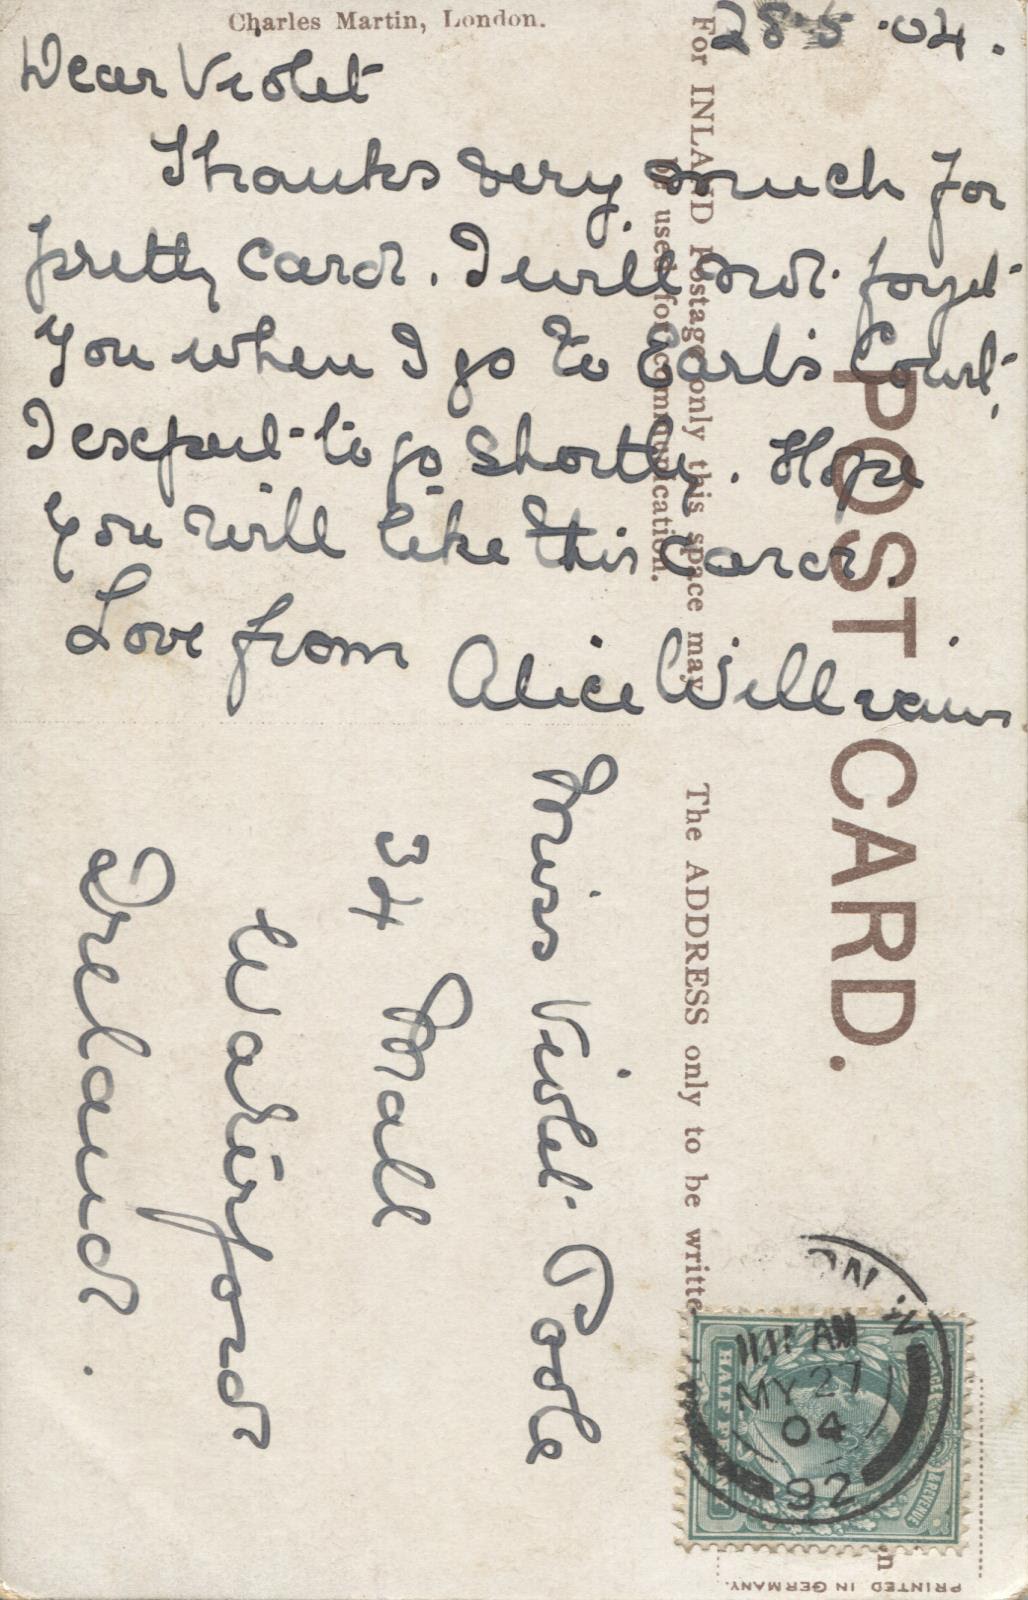 Charles Martin, London.
28·5·04.
Dear Violet
Thanks very much for
pretty card. I will not forget
you when I go to Earl's Court,
I expect to go shortly. Hope
you will like this card
Love from Alice Williams
POST CARD.
For INLAND Postage only this space may
be used for communication.
The ADDRESS only to be writte
Miss Violet Poole
34 Mall
Waterford
Ireland.
ON W.
11.15 AM
MY 27
04
92
HALF PENNY
POSTAGE & REVENUE
n
PRINTED IN GERMANY.